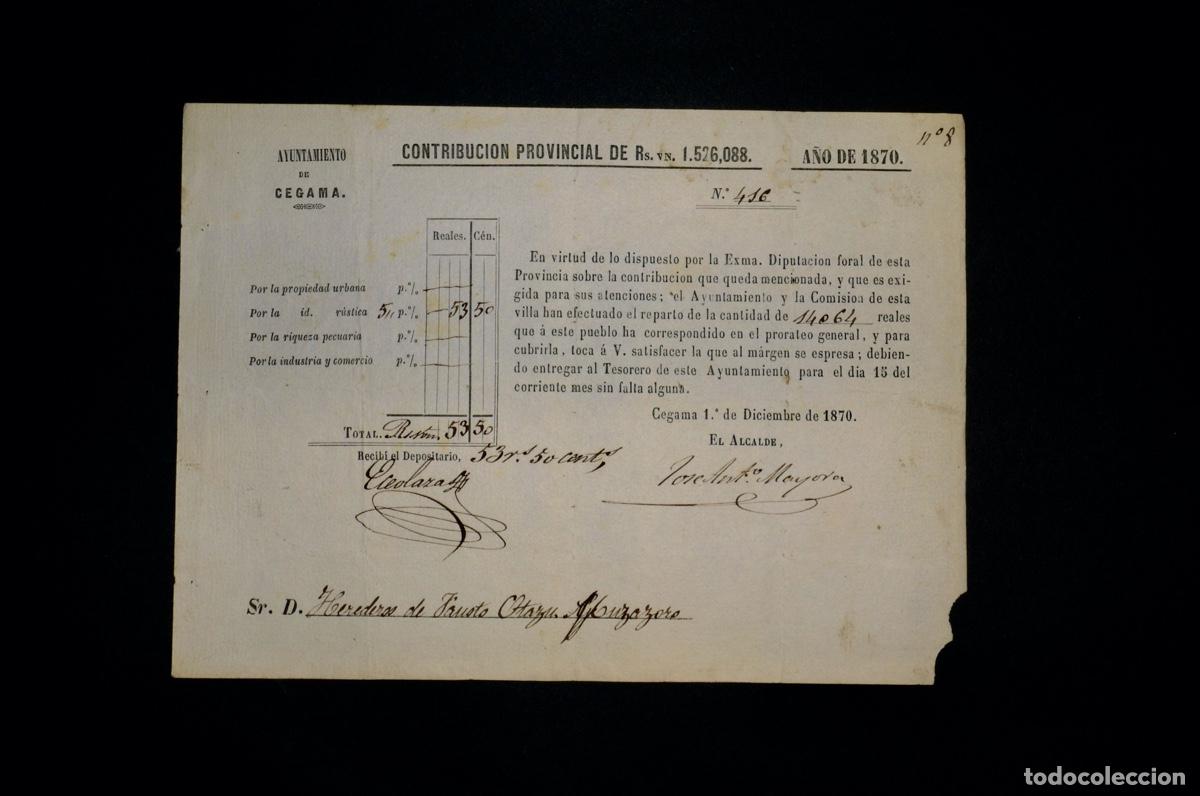 nº 8
AYUNTAMIENTO
DE
CEGAMA.
CONTRIBUCION PROVINCIAL DE Rs. VN. 1.526,088.
AÑO DE 1870.
N.º 416
Reales. Cén.
Por la propiedad urbana p.º/º
Por la id. rústica 5 p.º/º 53 50
Por la riqueza pecuaria p.º/º
Por la industria y comercio p.º/º
TOTAL. 53 50
En virtud de lo dispuesto por la Exma. Diputacion foral de esta
Provincia sobre la contribucion que queda mencionada, y que es exi-
gida para sus atenciones; el Ayuntamiento y la Comision de esta
villa han efectuado el reparto de la cantidad de 14064 reales
que á este pueblo ha correspondido en el prorateo general, y para
cubrirla, toca á V. satisfacer la que al márgen se espresa; debien-
do entregar al Tesorero de este Ayuntamiento para el dia 15 del
corriente mes sin falta alguna.
Cegama 1.º de Diciembre de 1870.
EL ALCALDE,
Recibí el Depositario, 53 r.s 50 cent.s
Jose Ant.º Mayora
Sr. D. Herederos de Fausto Otazu
todocoleccion